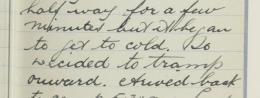 half way for a few
minutes but it began
to get to cold. So
decided to tramp
onward. Arived back